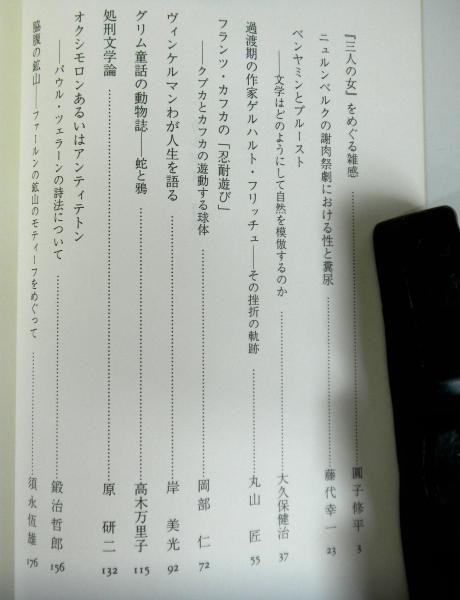 『三人の女』をめぐる雑感 圓子修平 3
ニュルンベルクの謝肉祭劇における性と糞尿 藤代幸一 23
ベンヤミンとプルースト
――文学はどのようにして自然を模倣するのか 大久保健治 37
過渡期の作家ゲルハルト・フリッチュ――その挫折の軌跡 丸山匠 55
フランツ・カフカの「忍耐遊び」
――クブカとカフカの遊動する球体 岡部仁 72
ヴィンケルマンわが人生を語る 岸美光 92
グリム童話の動物誌――蛇と鴉 高木万里子 115
処刑文学論 原研二 132
オクシモロンあるいはアンティテトン
――パウル・ツェラーンの詩法について 鍛治哲郎 156
脇腹の鉱山――ファールンの鉱山のモティーフをめぐって 須永恆雄 176